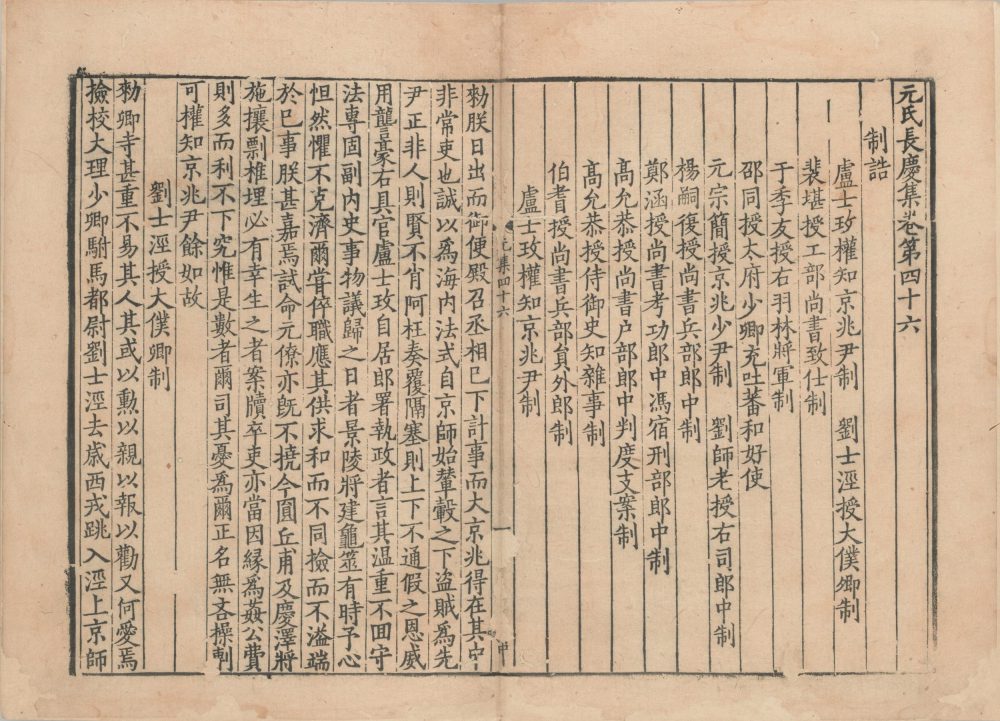 元氏長慶集卷第四十六
制誥
盧士玫權知京兆尹制　劉士涇授大僕卿制
裴堪授工部尚書致仕制
于季友授右羽林將軍制
邵同授太府少卿充吐蕃和好使
元宗簡授京兆少尹制　劉師老授右司郎中制
楊嗣復授尚書兵部郎中制
鄭涵授尚書考功郎中馮宿刑部郎中制
髙允恭授尚書户部郎中判度支案制
髙允恭授侍御史知雜事制
伯耆授尚書兵部負外郎制
盧士玫權知京兆尹制
元集四十六
一
中
勑朕日出而御便殿召丞相已下計事而大京兆得在其中
非常吏也誠以爲海内法式自京師始輦轂之下盗賊爲先
尹正非人則賢不肖阿枉奏覆隔塞則上下不通假之恩威
用讋豪右具官盧士玫自居郎署執政者言其温重不囬守
法專固副内史事物議歸之日者景陵將建龜筮有時予心
怛然懼不克濟爾甞倅職應其供求和而不同撿而不溢端
於已事朕甚嘉焉試命元僚亦旣不撓今圓丘甫及慶澤將
施攘剽椎埋必有幸生之者案牘卒吏亦當因縁爲姦公費
則多而利不下究惟是數者爾司其憂爲爾正名無吝操制
可權知京兆尹餘如故
劉士涇授大僕卿制
勑卿寺甚重不易其人其或以勲以親以報以勸又何愛焉
撿校大理少卿駙馬都尉劉士涇去歲西戎跳入涇上京師